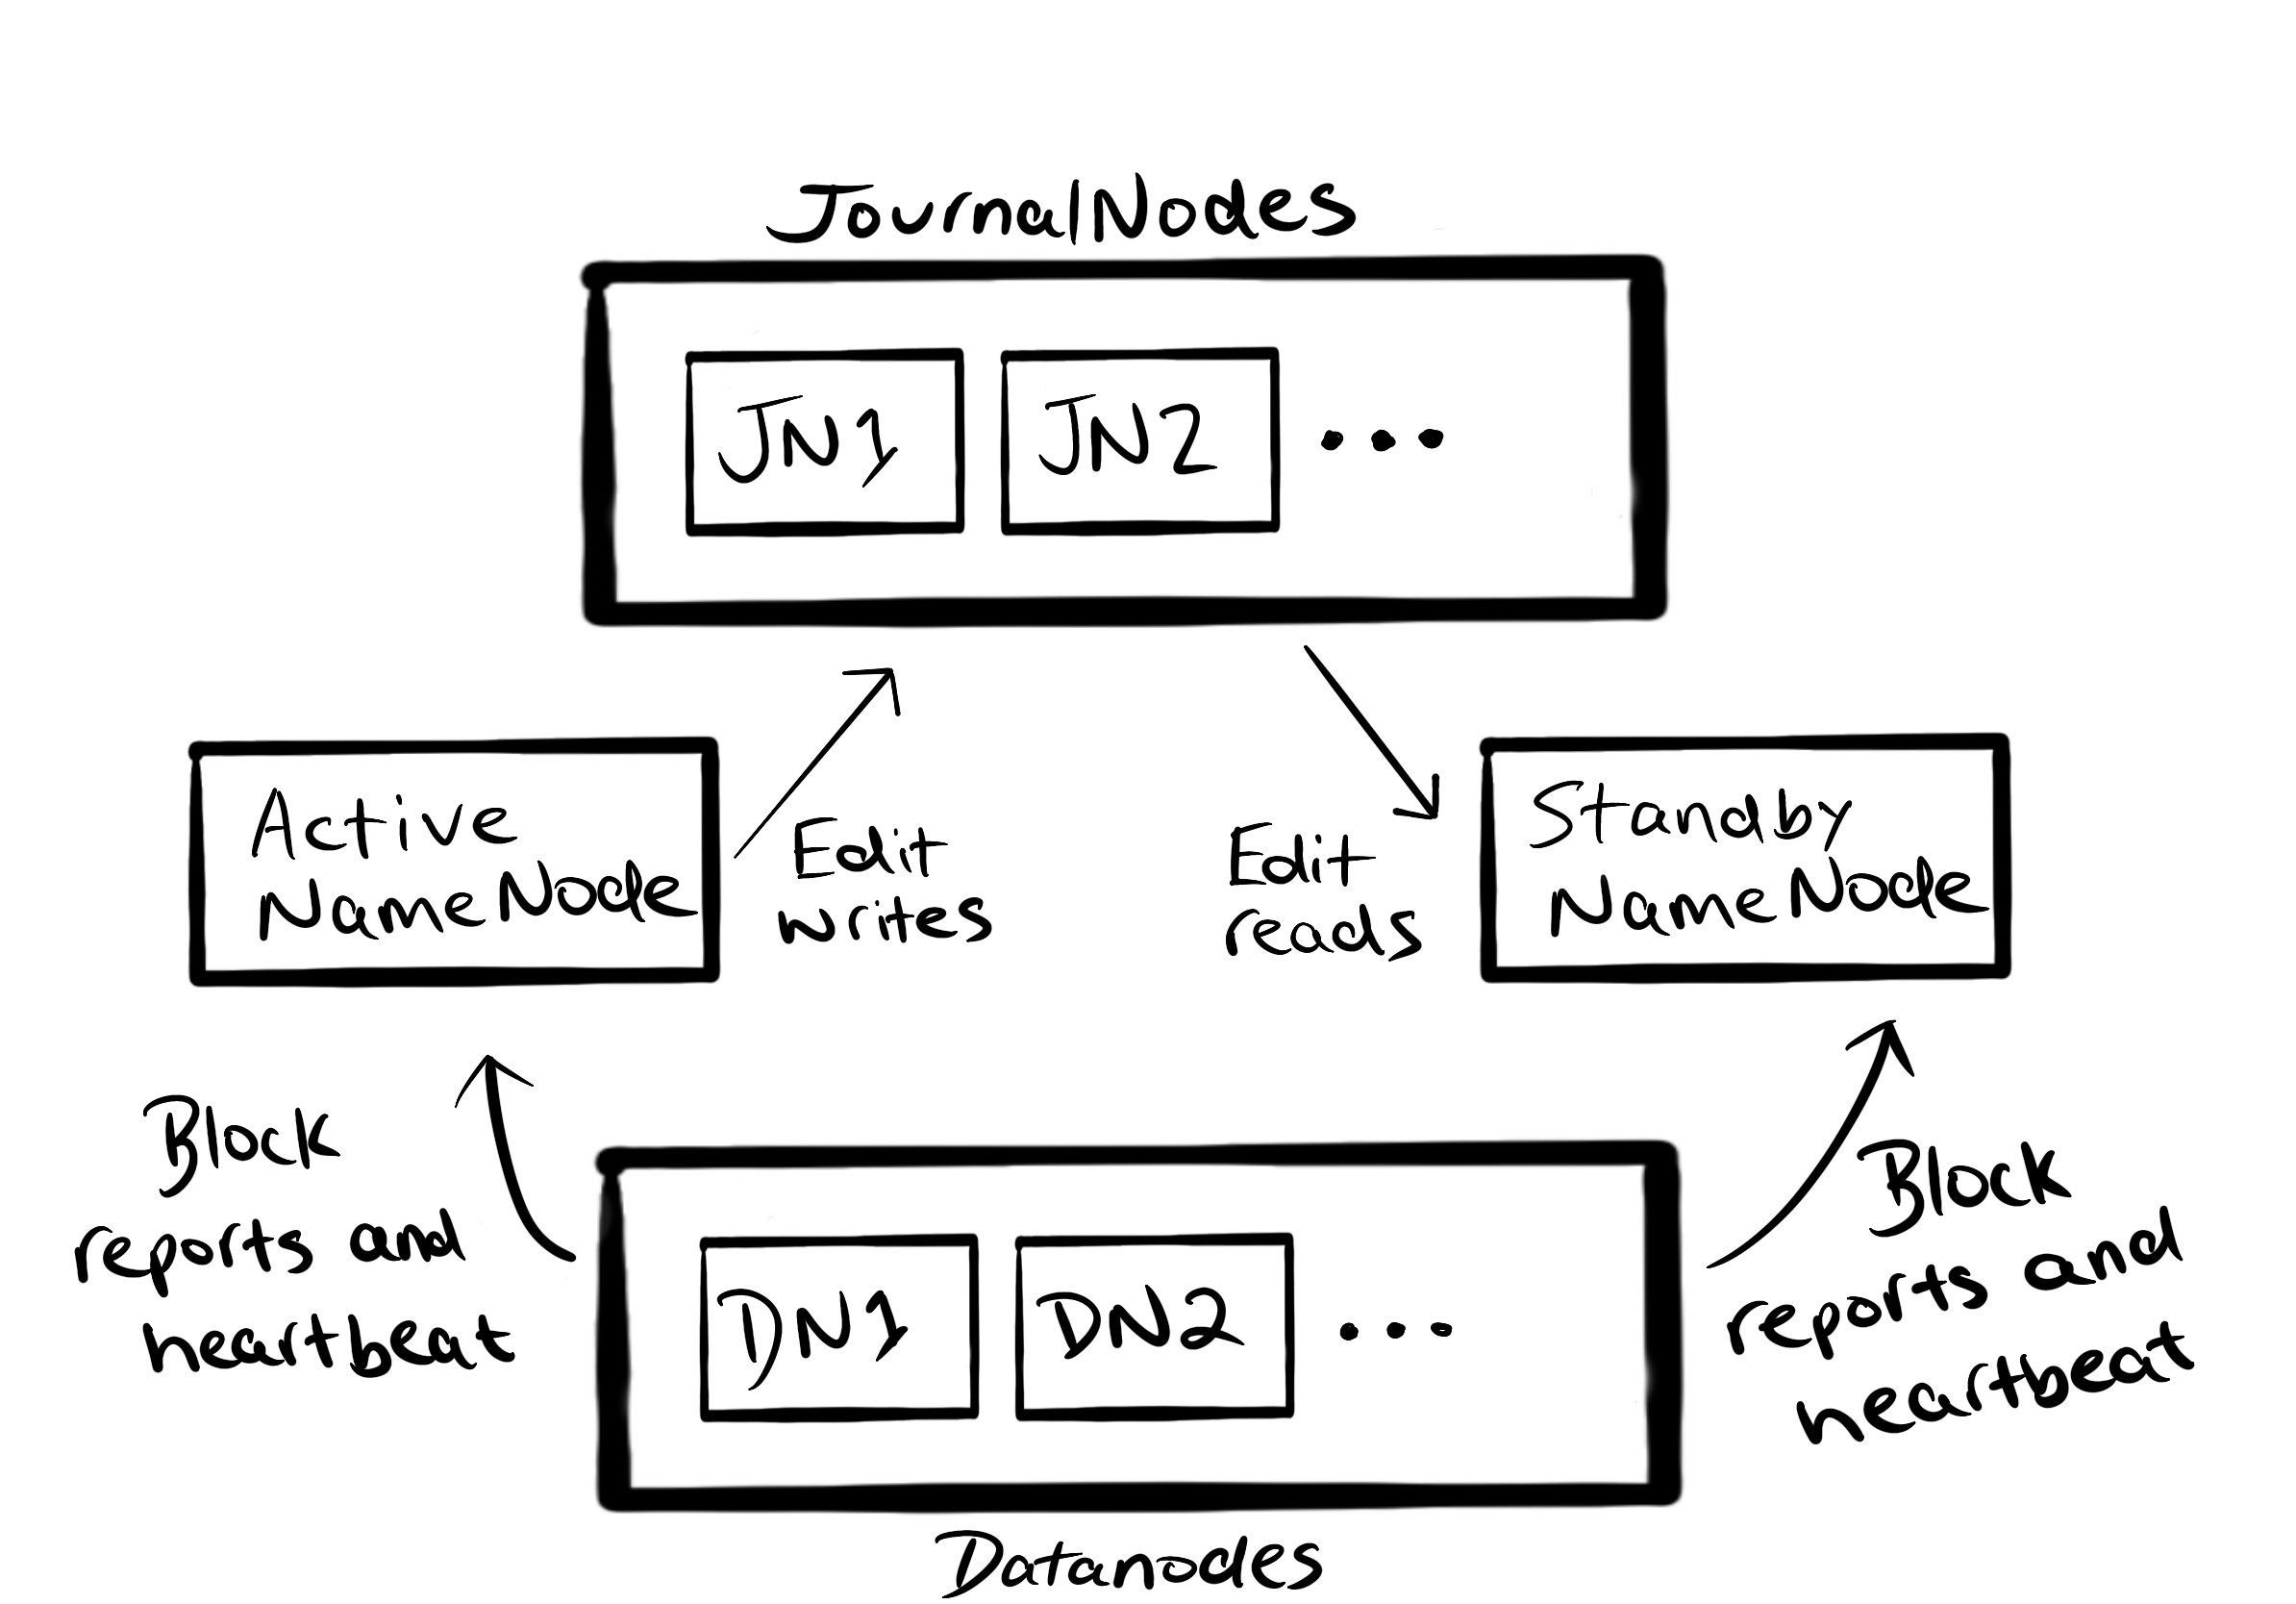 JournalNodes
JN1
JN2
Active
NameNode
Edit
writes
Edit
reads
Standby
NameNode
Block
reports and
heartbeat
DN1
DN2
Block
reports and
heartbeat
Datanodes